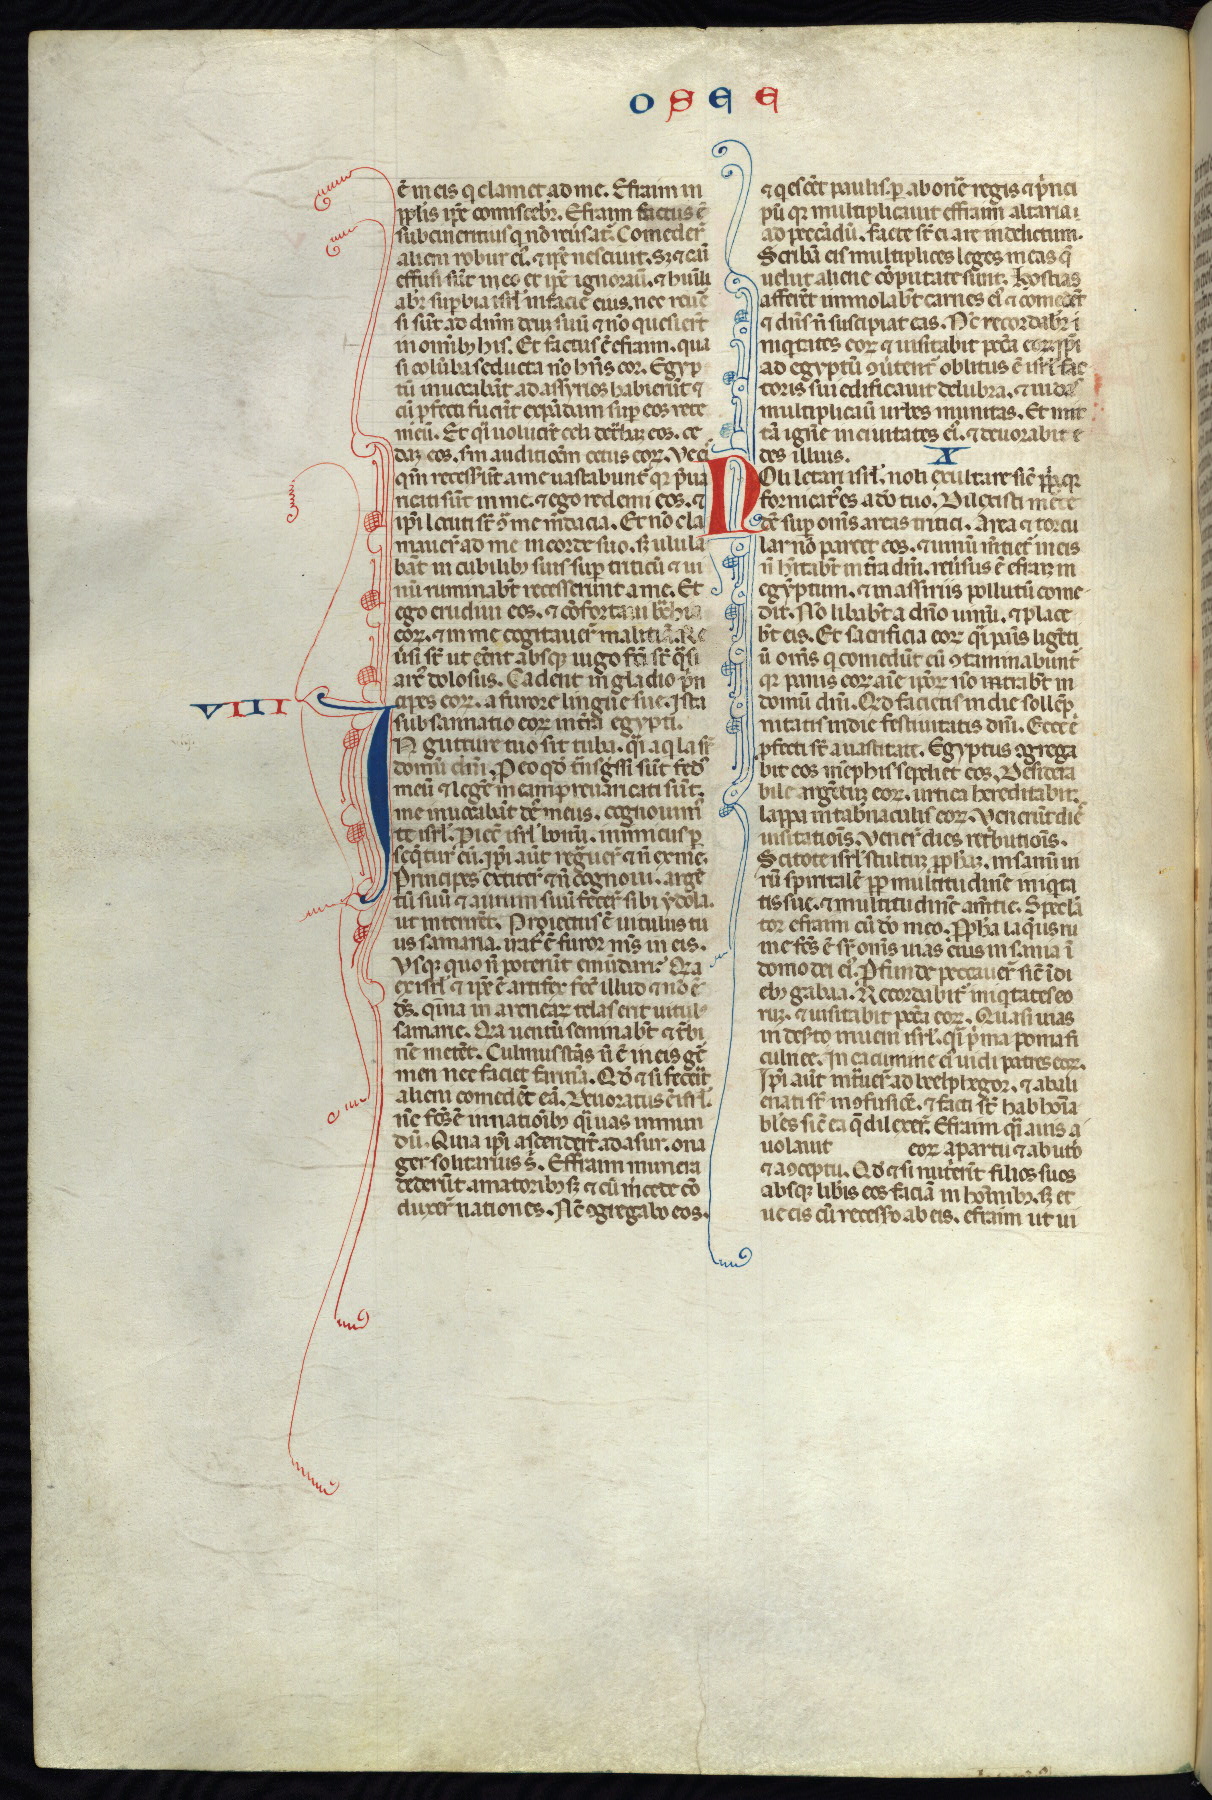 OSEE
ē in eis q clamet ad me. Efraim in
pplis ip̄e comiscebr̄. Efraim factus ē
subcinericius q nō reūsatr̄. Comeder̄
alieni robur eī. & ip̄e nesciuit. Sꝫ & cani
effusi sūt in eo et ip̄e ignorauī. & humili
abr̄ supbia isrl̄ in facie eius. nec reuē
si sūt ad dn̄m deuꝫ suū & nō quesierūt
in om̄ibꝫ his. Et factus ē efraim. qua
si colūba seducta nō hn̄s cor. Egyp
tū inuocabāt ad assyrios habierūt &
cū pfecti fueīt expādam sup eos rete
meū. Et q̄i uolucrē celi det̄ham eos. ce
daꝫ eos. sm̄ auditiōem cetus eoꝝ. Ve ei
qm̄ recesser̄t a me uastabunt̄ qꝛ p̄ua
ricati sūt in me. & ego redemi eos. &
ip̄i locuti st̄ ꝯ me m̄dacia. Et nō cla
mauer̄ ad me in corde suo. sꝫ ulula
bāt in cubilibꝫ suis sup triticū & ui
nū ruminabāt recesserunt a me. Et
ego erudiui eos. & cōfortaui b̄chia
eoꝝ. & in me cogitauer̄ malitiā. Re
ūsi st̄ ut eēnt absqꝫ iugo fc̄i st̄ q̄si
arc̄ dolosus. Cadent in gladio p̄n
cipes eoꝝ. a furore lingue sue. Ista
VIII
subsannatio eoꝝ in t̄ra egypti.
IN gutture tuo sit tuba. q̄i aq̄la sr̄
domū dn̄i. P eo qd̄ t̄nsgssi sūt fed̄
meū & legē meam p̄uaricati sūt.
me inuocabāt dē meus. cognouim̄
te isrl̄. Piecit isrl̄ bonū. inimicus p
seqt̄ur eū. Ip̄i aūt regnauer̄ & n̄ ex me.
Principes extiter̄ & n̄ cognoui. argē
tū suū & aurum suū fecer̄ sibi ydola.
ut interirēt. Proiectus ē uitulus tu
us samaria. irat̄ ē furor m̄s in eis.
Vsqꝫ quo n̄ poterūt emūdari. Qꝛa
ex isrl̄ & ip̄e ē artifex fec̄ illud & nō ē
ds̄. qm̄a in arenearꝝ telas erit uitul̄
samarie. Qꝛa uentū seminabt̄ & t̄bi
nē metēt. Culmus stās n̄ ē in eis ger
men nec faciet farinā. Qd̄ & si fecerīt
alieni comedēt eā. Deuoratus ē isrl̄.
nc̄ fc̄s ē in nationibꝫ q̄i uas inmun
dū. Quia ip̄i ascender̄t ad asur. ona
ger solitarius s̄. Effraim munera
dederūt amatoribꝫ sꝫ & cū mcede cō
duxer̄ nationes. Nc̄ ꝯgregabo eos.
& qescēt paulisp ab onē regis & p̄nci
pū qꝛ multiplicauit effraim altaria
ad peccādū. facte st̄ ei are in delictum.
Scribā eis multiplices leges meas q̄
uelut aliene cōputate sunt. Hostias
afferēt immolabt̄ carnes eī & comedēt
& dn̄s n̄ suscipiat eas. Nc̄ recordabr̄ i
niqtates eoꝝ & uisitabit pcc̄a eoꝝ. ip̄i
ad egyptū ꝯuertent̄ oblitus ē isrl̄ fac
toris sui edificauit delubra. & iudas
multiplicauī urbes munitas. Et mit
tā ignē in ciuitates eī. & deuorabit e
des illius. X
NOli letari isrl̄. noli exultare sic̄ ppl̄i. qꝛ
fornicatꝰ es a dō tuo. Dilexisti mcē
dē sup om̄s areas tritici. Area & torcu
lar nō pascet eos. & uinū m̄tiet̄ in eis
n̄ hītabt̄ in t̄ra dn̄i. reūsus ē efraꝫ in
egyptum. & in assiriis pollutū come
dit. Nō libabt̄ a dn̄o uinū. & place
bt̄ eis. Et sacrificia eoꝝ q̄i panis ligēti
ū om̄s q comedūt eū ꝯtaminabunt̄
qꝛ panis eoꝝ aīe ip̄oꝝ nō intrabt̄ in
domū dn̄i. Qd̄ facietis in die sollēp
nitatis in die festiuitatis dn̄i. Ecce ē
pfecti st̄ a uastitate. Egyptus ꝯgrega
bit eos mēphis sepeliet eos. Desidera
bile argētuꝫ eoꝝ. urtica hereditabit.
lappa in tabnaculis eoꝝ. Venerūt die
uisitationis. uener̄ dies ret̄butionis.
Scitote isrl̄ stultuꝫ pphaꝫ. insanū ui
rū spiritalē pp multitudinē iniqta
tis tue. & multitudinē amtie. Specla
tor efraim cū dō meo. Ppha laqus ru
ine fc̄s ē sr̄ om̄s uias eius insania ī
domo dei eī. Pfunde peccauer̄ sic̄ ī di
ebꝫ gabaa. Recordabit̄ iniqtates eo
ruꝫ. & uisitabit pcc̄a eoꝝ. Quasi uuas
in desto inueni isrl̄. q̄i p̄ma poma fi
culnee. in cacumine eī uidi patres eoꝝ.
Ip̄i aūt intuer̄ ad beelphegor. & abali
enati st̄ in ꝯfusionē. & facti st̄ habhoīa
bles sic̄ ea q̄ dilexer̄. Efraim q̄i auis a
uolauit eoꝝ a partu & ab utō
& a ꝯceptu. Qd̄ & si nutrierīt filios suos
absqꝫ libis eos faciā in hoībꝫ. sꝫ et
ue eis cū recesso ab eis. efraim ut ui